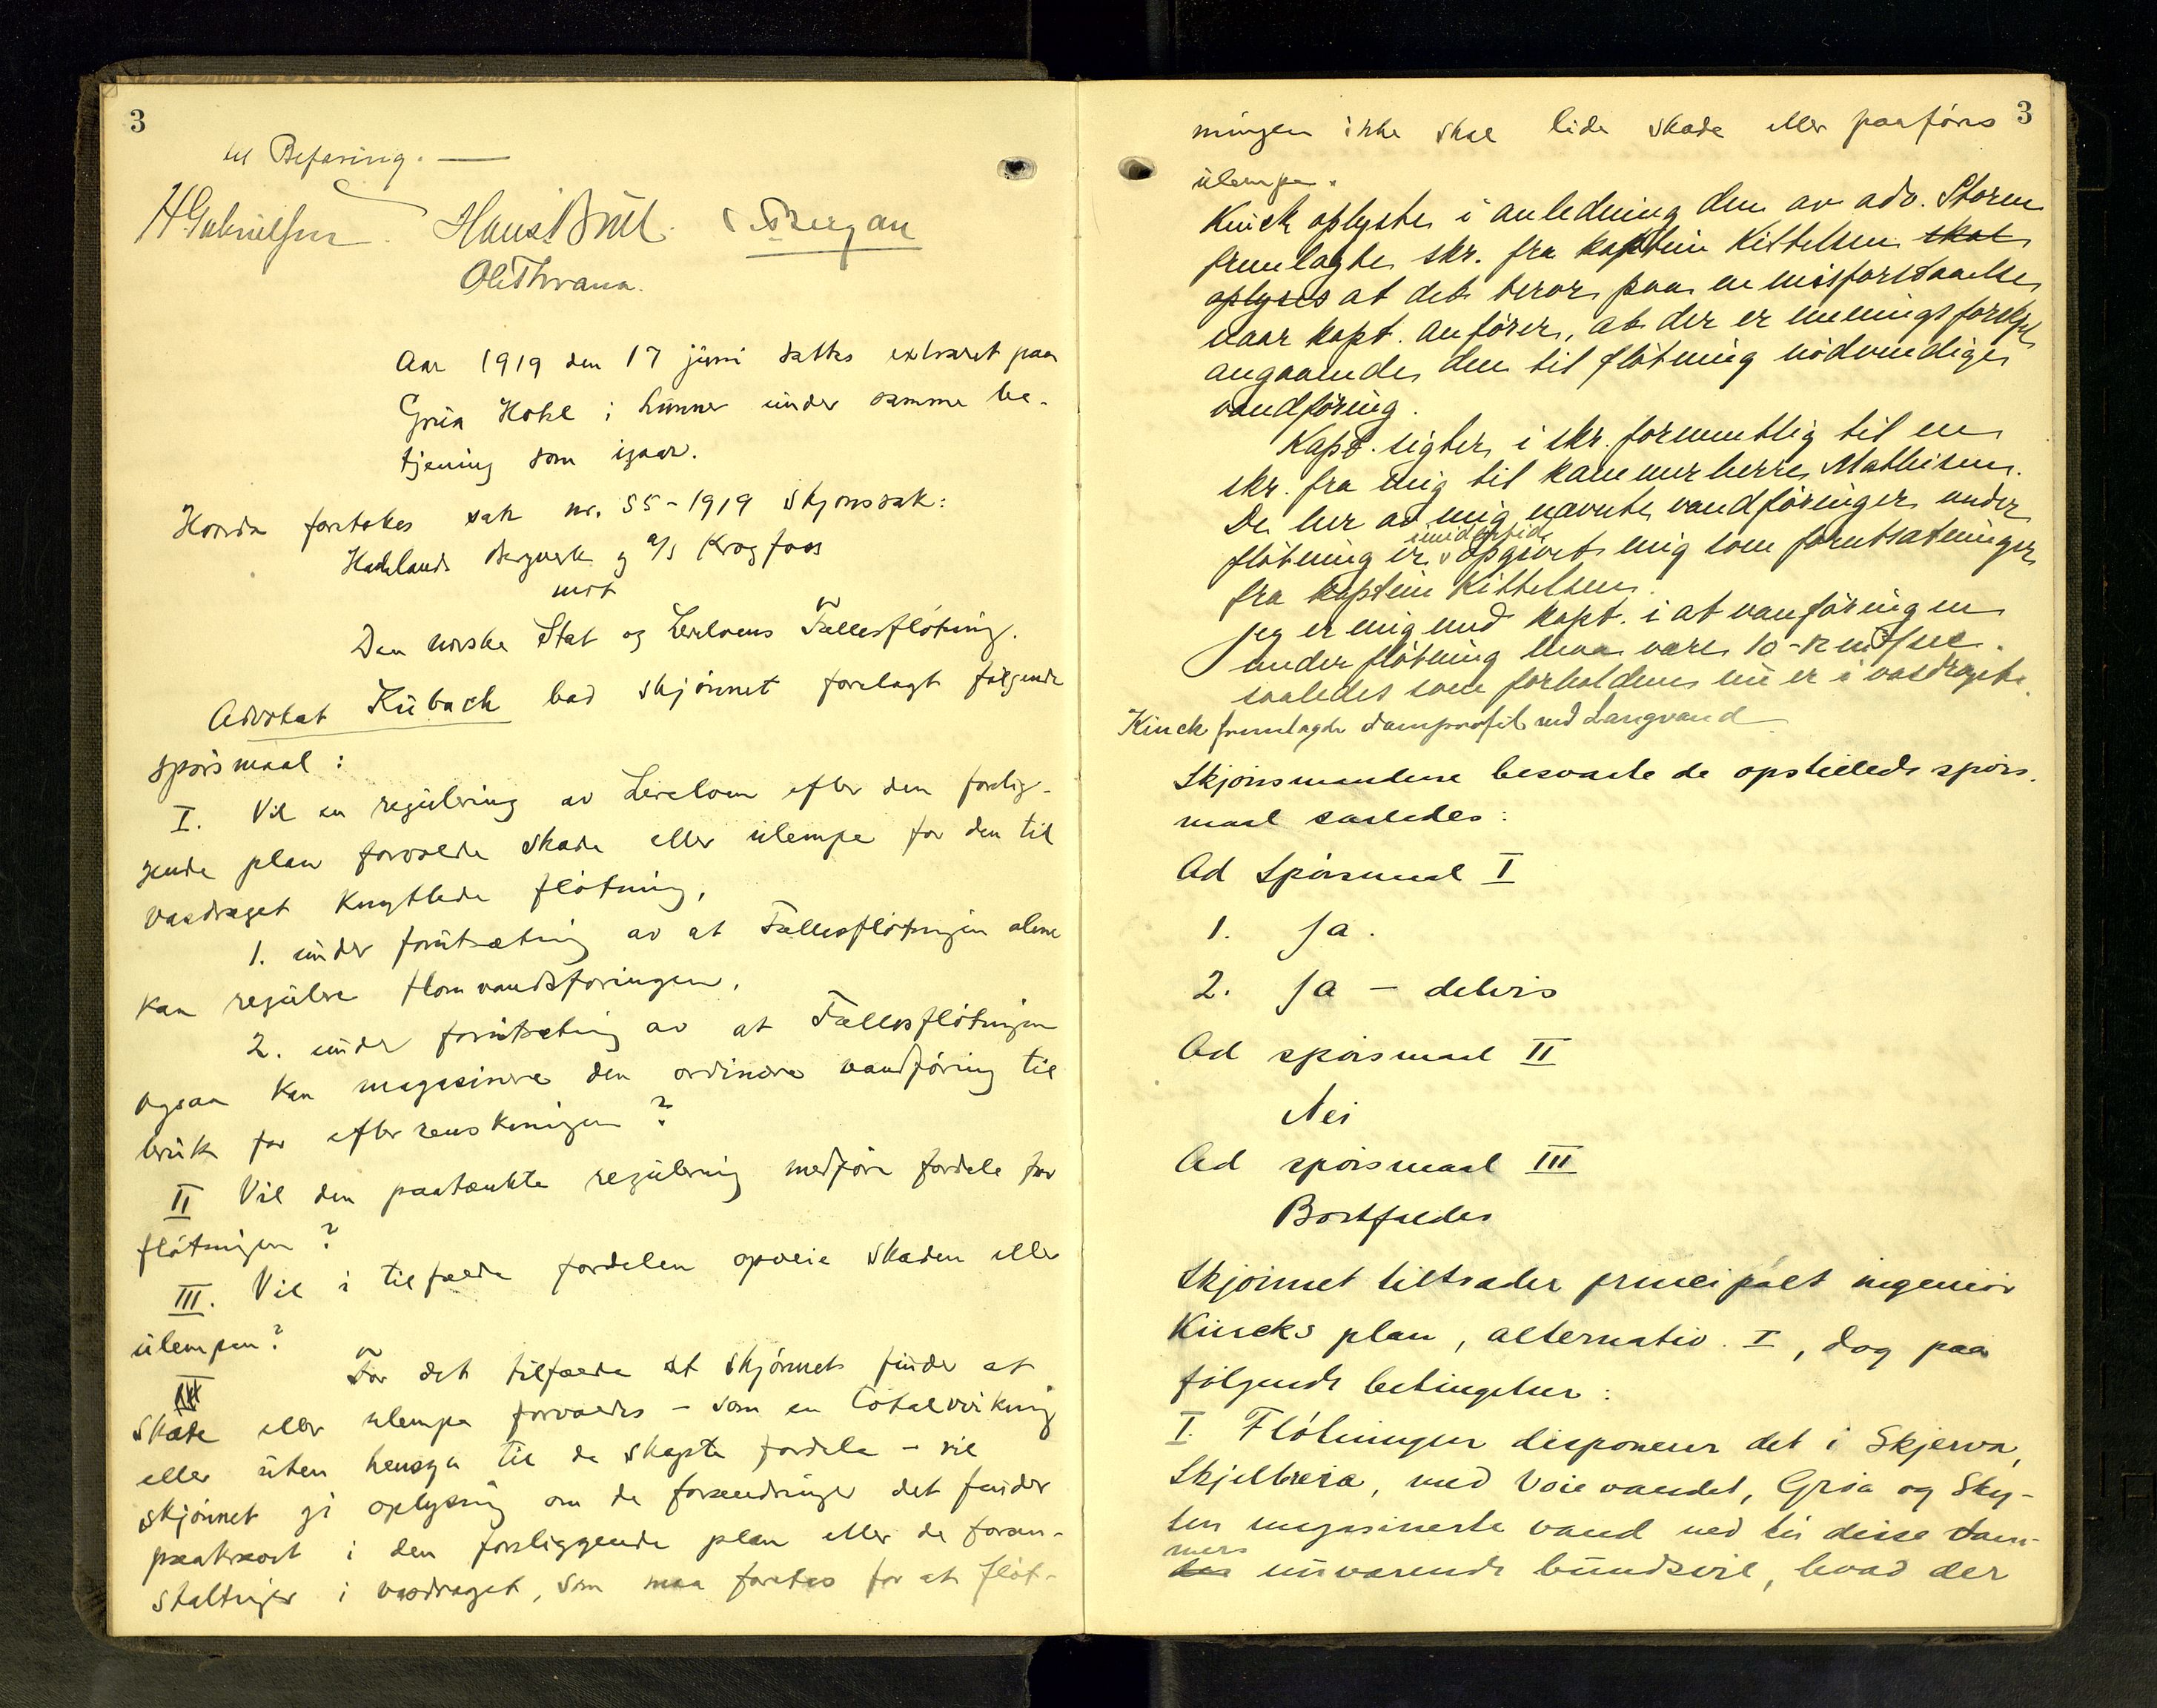 3
til Befaring. —
H Gabrielsen. Hans Bull. Bergan
Ole Thvana.
Aar 1919 den 17 juni sattes extraret paa
Grua Hotel i Lunner under samme be-
tjening som igaar.
Hvorda foretokes sak nr. 55-1919 Skjønssak:
Hadelands Bergverk og A/S Kragfoss
mot
Den norske Stat og Leirelvens Fællesfløtning.
Advokat Kübach bad skjønnet forelagt følgende
spørsmaal:
I. Vil en regulering av Leirelven efter den forelig-
gende plan forvolde skade eller ulempe for den til
vasdraget knyttede fløtning,
1. under forutsætning av at Fællesfløtningen alene
kan regulere flomvandsføringen,
2. under forutsætning av at Fællesfløtningen
ogsaa kan magasinere den ordinære vandføring til
bruk for efterrenskningen?
II Vil den paatænkte regulering medføre fordele for
fløtningen?
III. Vil i tilfælde fordelen opveie skaden eller
ulempen?
For det tilfælde at skjønnet finder at
skade eller ulempe forvoldes - som en totalvirkning
eller uten hensyn til de skapte fordele - vil
skjønnet gi oplysning om de forandringer det finder
paakrævet i den foreliggende plan eller de foran-
staltninger i vasdraget, som maa foretas for at fløt-
3
ningen ikke skal lide skade eller paaføres
ulempe.
Kinck oplyste i anledning den av adv. Storm
fremlagte skr. fra kaptein Kittelsen skal
oplyses at det beror paa en misforstaaelse
naar kapt. anfører, at der er meningsforskjel
angaaende den til fløtning nødvendige
vandføring.
Kapt. sigter i skr. formentlig til en
skr. fra mig til kammerherre Mathiesen.
De her av mig nævnte vandføringer under
imidlertid
fløtning er opgivet mig som forutsætninger
fra kaptein Kittelsen.
Jeg er enig med kapt. i at vanføringen
under fløtning maa være 10-12 m³/sec.
saaledes som forholdene nu er i vasdraget.
Kinck fremlagde damprofil ved Langvand
Skjønsmændene besvarte de opstillede spørs-
maal saaledes:
Ad Spørsmaal I
1. Ja.
2. Ja - delvis
Ad spørsmaal II
Nei
Ad spørsmaal III
Bortfalder
Skjønnet tiltræder principalt ingeniør
Kincks plan, alternativ. I, dog paa
følgende betingelser:
I. Fløtningen disponerer det i Skjerva,
Skjelbreia, med Voievandet, Grua og Sky-
ten magasinerte vand ned til disse dam-
mers
des nuværende bundsvil, hvad der